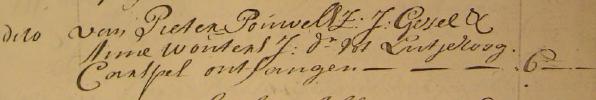 dito van Pieter Pouwels J: J: Gesel &
Anna Wouters J: dr uit Lutjeloog.
Carspel ontfangen — — — 6 —